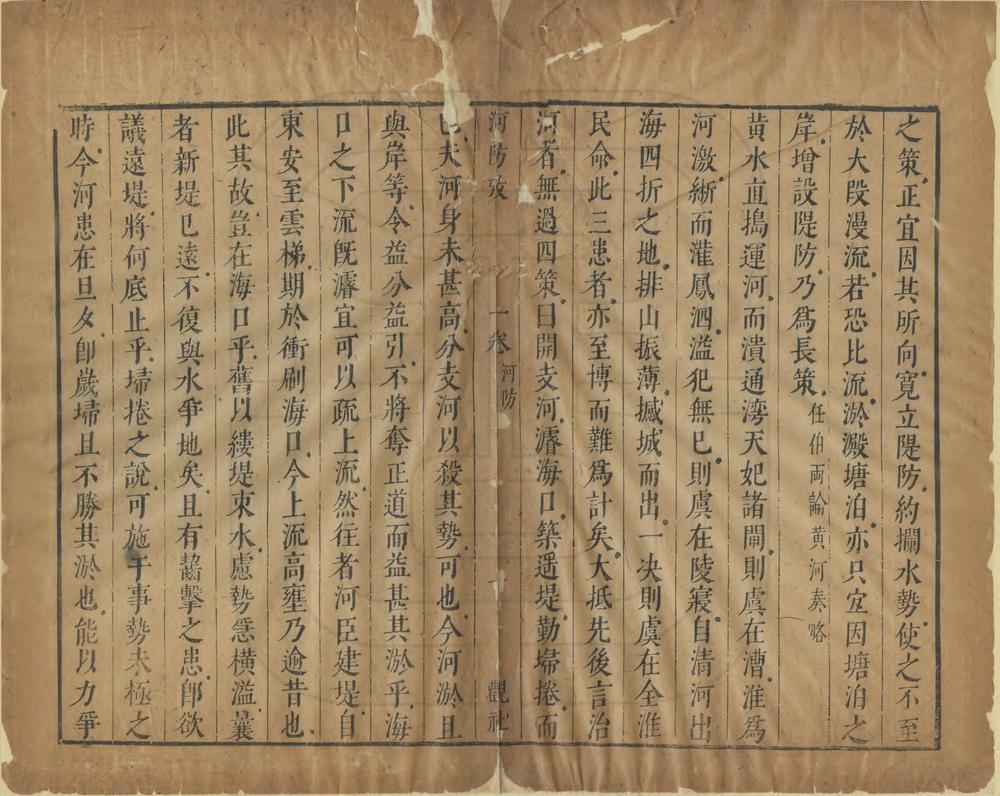 之策正宜因其所向寬立隄防約攔水勢使之不至
於大段漫流若恐比流淤澱塘泊亦只宜因塘泊之
岸增設隄防乃爲長策任伯雨論黄河奏略
黄水直搗運河而潰通灣天妃諸閘則虞在漕淮爲
河激浙而灌鳳泗溢犯無已則虞在陵寢自清河出
海四折之地排山振薄撼城而出一决則虞在全淮
民命此三患者亦至博而難爲計矣大抵先後言治
河者無過四策曰開支河濬海口築遥堤勤埽捲而
河防攷 一卷 河防 觀社
已夫河身未甚高分支河以殺其勢可也今河淤且
與岸等令益分益引不將奪正道而益甚其淤乎海
口之下流旣濬宜可以疏上流然往者河臣建堤自
東安至雲梯期於衝刷海口今上流高壅乃逾昔也
此其故豈在海口乎舊以縷堤束水慮勢悉横溢曩
者新堤已遠不復與水爭地矣且有齧擊之患卽欲
議遠堤將何底止乎埽捲之說可施于事勢未極之
時今河患在旦夕卽歲埽且不勝其淤也能以力爭